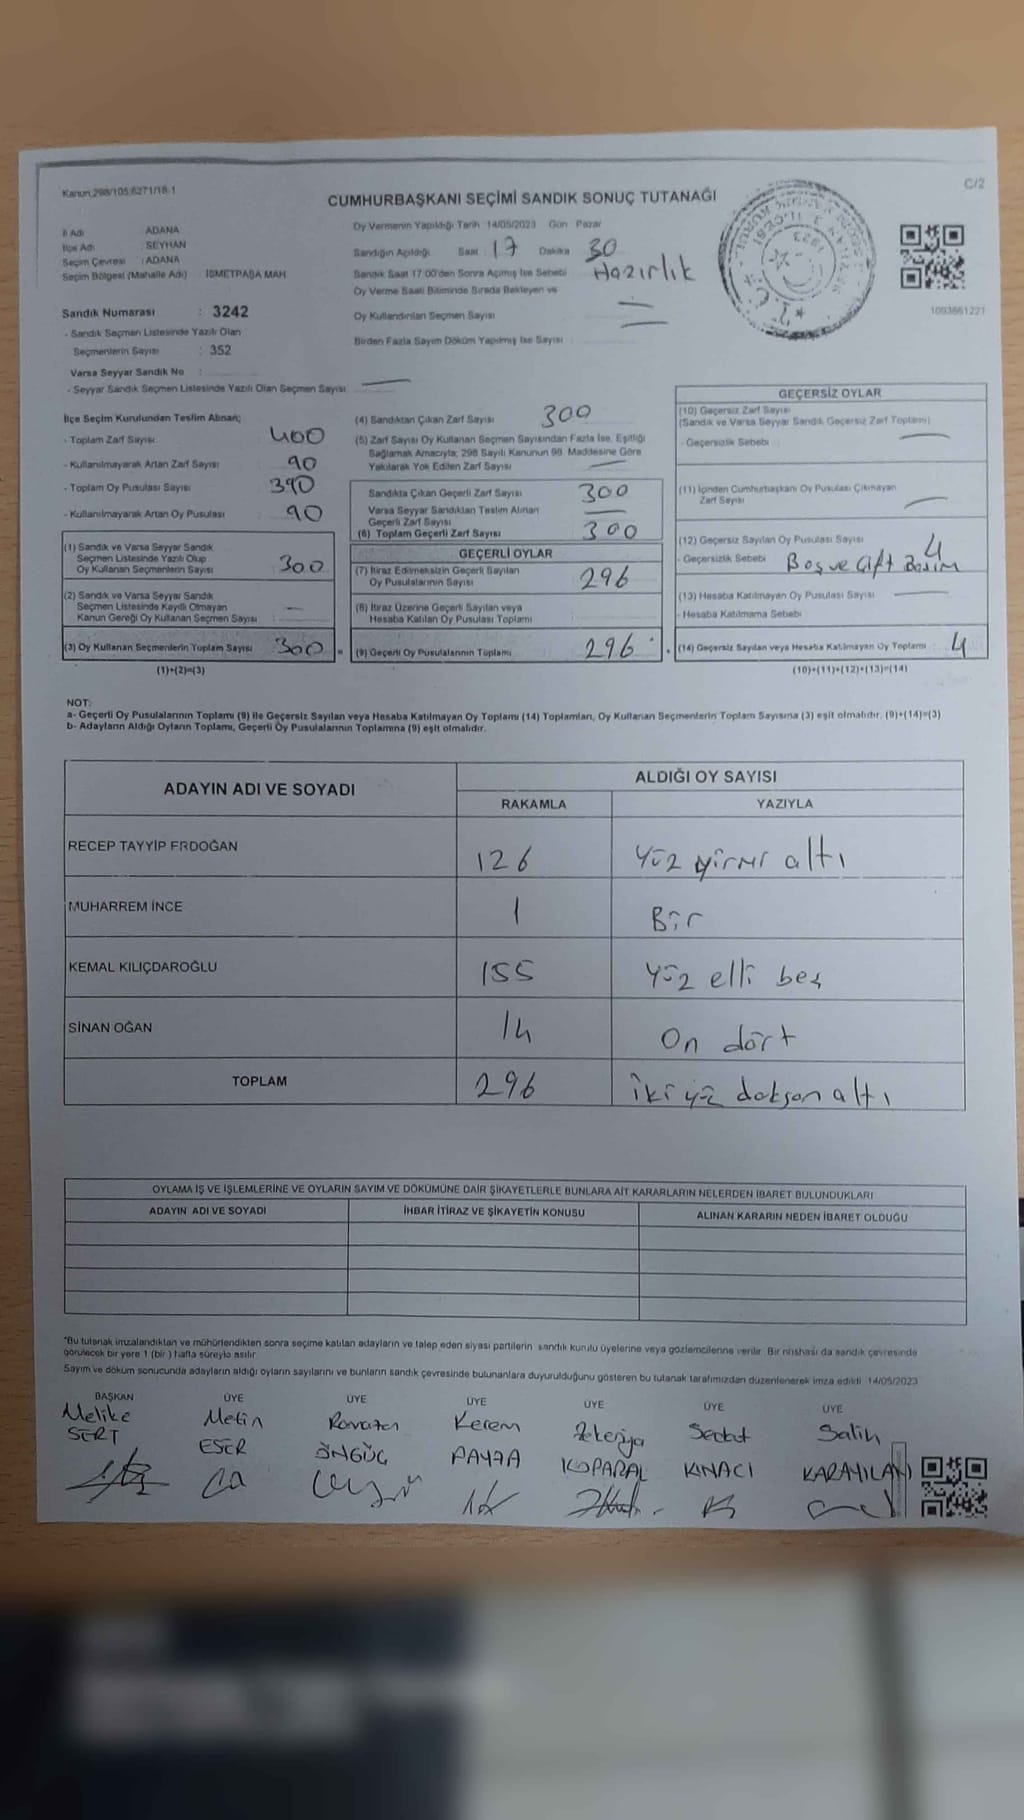 Kanun:298/105;6271/18-1
C/2
CUMHURBAŞKANI SEÇİMİ SANDIK SONUÇ TUTANAĞI
İl Adı ADANA
İlçe Adı : SEYHAN
Seçim Çevresi : ADANA
Seçim Bölgesi (Mahalle Adı) : İSMETPAŞA MAH
Sandık Numarası : 3242
- Sandık Seçmen Listesinde Yazılı Olan
Seçmenlerin Sayısı : 352
Varsa Seyyar Sandık No :
- Seyyar Sandık Seçmen Listesinde Yazılı Olan Seçmen Sayısı
Oy Vermenin Yapıldığı Tarih : 14/05/2023 Gün Pazar
Sandığın Açıldığı Saat : 17 Dakika 30
Sandık Saat 17:00'den Sonra Açılmış İse Sebebi Hazırlık
Oy Verme Saati Bitiminde Sırada Bekleyen ve
Oy Kullandırılan Seçmen Sayısı
Birden Fazla Sayım Döküm Yapılmış İse Sayısı
1093661221
İlçe Seçim Kurulundan Teslim Alınan;
- Toplam Zarf Sayısı 400
- Kullanılmayarak Artan Zarf Sayısı 90
- Toplam Oy Pusulası Sayısı 390
- Kullanılmayarak Artan Oy Pusulası 90
(1) Sandık ve Varsa Seyyar Sandık
Seçmen Listesinde Yazılı Olup
Oy Kullanan Seçmenlerin Sayısı 300
(2) Sandık ve Varsa Seyyar Sandık
Seçmen Listesinde Kaydı Olmayan
Kanun Gereği Oy Kullanan Seçmen Sayısı
(3) Oy Kullanan Seçmenlerin Toplam Sayısı 300
(1)+(2)=(3)
(4) Sandıktan Çıkan Zarf Sayısı 300
(5) Zarf Sayısı Oy Kullanan Seçmen Sayısından Fazla İse, Eşitliği
Sağlamak Amacıyla; 298 Sayılı Kanunun 98. Maddesine Göre
Yakılarak Yok Edilen Zarf Sayısı
Sandıkta Çıkan Geçerli Zarf Sayısı 300
Varsa Seyyar Sandıktan Teslim Alınan
Geçerli Zarf Sayısı
(6) Toplam Geçerli Zarf Sayısı 300
GEÇERLİ OYLAR
(7) İtiraz Edilmeksizin Geçerli Sayılan
Oy Pusulalarının Sayısı 296
(8) İtiraz Üzerine Geçerli Sayılan veya
Hesaba Katılan Oy Pusulası Toplamı
(9) Geçerli Oy Pusulalarının Toplamı 296
GEÇERSİZ OYLAR
(10) Geçersiz Zarf Sayısı
(Sandık ve Varsa Seyyar Sandık Geçersiz Zarf Toplamı)
- Geçersizlik Sebebi
(11) İçinden Cumhurbaşkanı Oy Pusulası Çıkmayan
Zarf Sayısı
(12) Geçersiz Sayılan Oy Pusulası Sayısı 4
- Geçersizlik Sebebi Boş ve Çift Basım
(13) Hesaba Katılmayan Oy Pusulası Sayısı
- Hesaba Katılmama Sebebi
(14) Geçersiz Sayılan veya Hesaba Katılmayan Oy Toplamı 4
(10)+(11)+(12)+(13)=(14)
NOT:
a- Geçerli Oy Pusulalarının Toplamı (9) ile Geçersiz Sayılan veya Hesaba Katılmayan Oy Toplamı (14) Toplamları, Oy Kullanan Seçmenlerin Toplam Sayısına (3) eşit olmalıdır. (9)+(14)=(3)
b- Adayların Aldığı Oyların Toplamı, Geçerli Oy Pusulalarının Toplamına (9) eşit olmalıdır.
ADAYIN ADI VE SOYADI ALDIĞI OY SAYISI
RAKAMLA YAZIYLA
RECEP TAYYİP ERDOĞAN 126 Yüz yirmi altı
MUHARREM İNCE 1 Bir
KEMAL KILIÇDAROĞLU 155 Yüz elli beş
SİNAN OĞAN 14 On dört
TOPLAM 296 iki yüz doksan altı
OYLAMA İŞ VE İŞLEMLERİNE VE OYLARIN SAYIM VE DÖKÜMÜNE DAİR ŞİKAYETLERLE BUNLARA AİT KARARLARIN NELERDEN İBARET BULUNDUKLARI
ADAYIN ADI VE SOYADI İHBAR İTİRAZ VE ŞİKAYETİN KONUSU ALINAN KARARIN NEDEN İBARET OLDUĞU
*Bu tutanak imzalandıktan ve mühürlendikten sonra seçime katılan adayların ve talep eden siyasi partilerin sandık kurulu üyelerine veya gözlemcilerine verilir. Bir nüshası da sandık çevresinde
görülecek bir yere 1 (bir) hafta süreyle asılır.
Sayım ve döküm sonucunda adayların aldığı oyların sayılarını ve bunların sandık çevresinde bulunanlara duyurulduğunu gösteren bu tutanak tarafımızdan düzenlenerek imza edildi. 14/05/2023
BAŞKAN ÜYE ÜYE ÜYE ÜYE ÜYE ÜYE
Melike Metin Ramazan Kerem Zekeriya Sedat Salih
SERT ESER ÖNGÜÇ PAYZA KOPARAL KINACI KARAYILAN